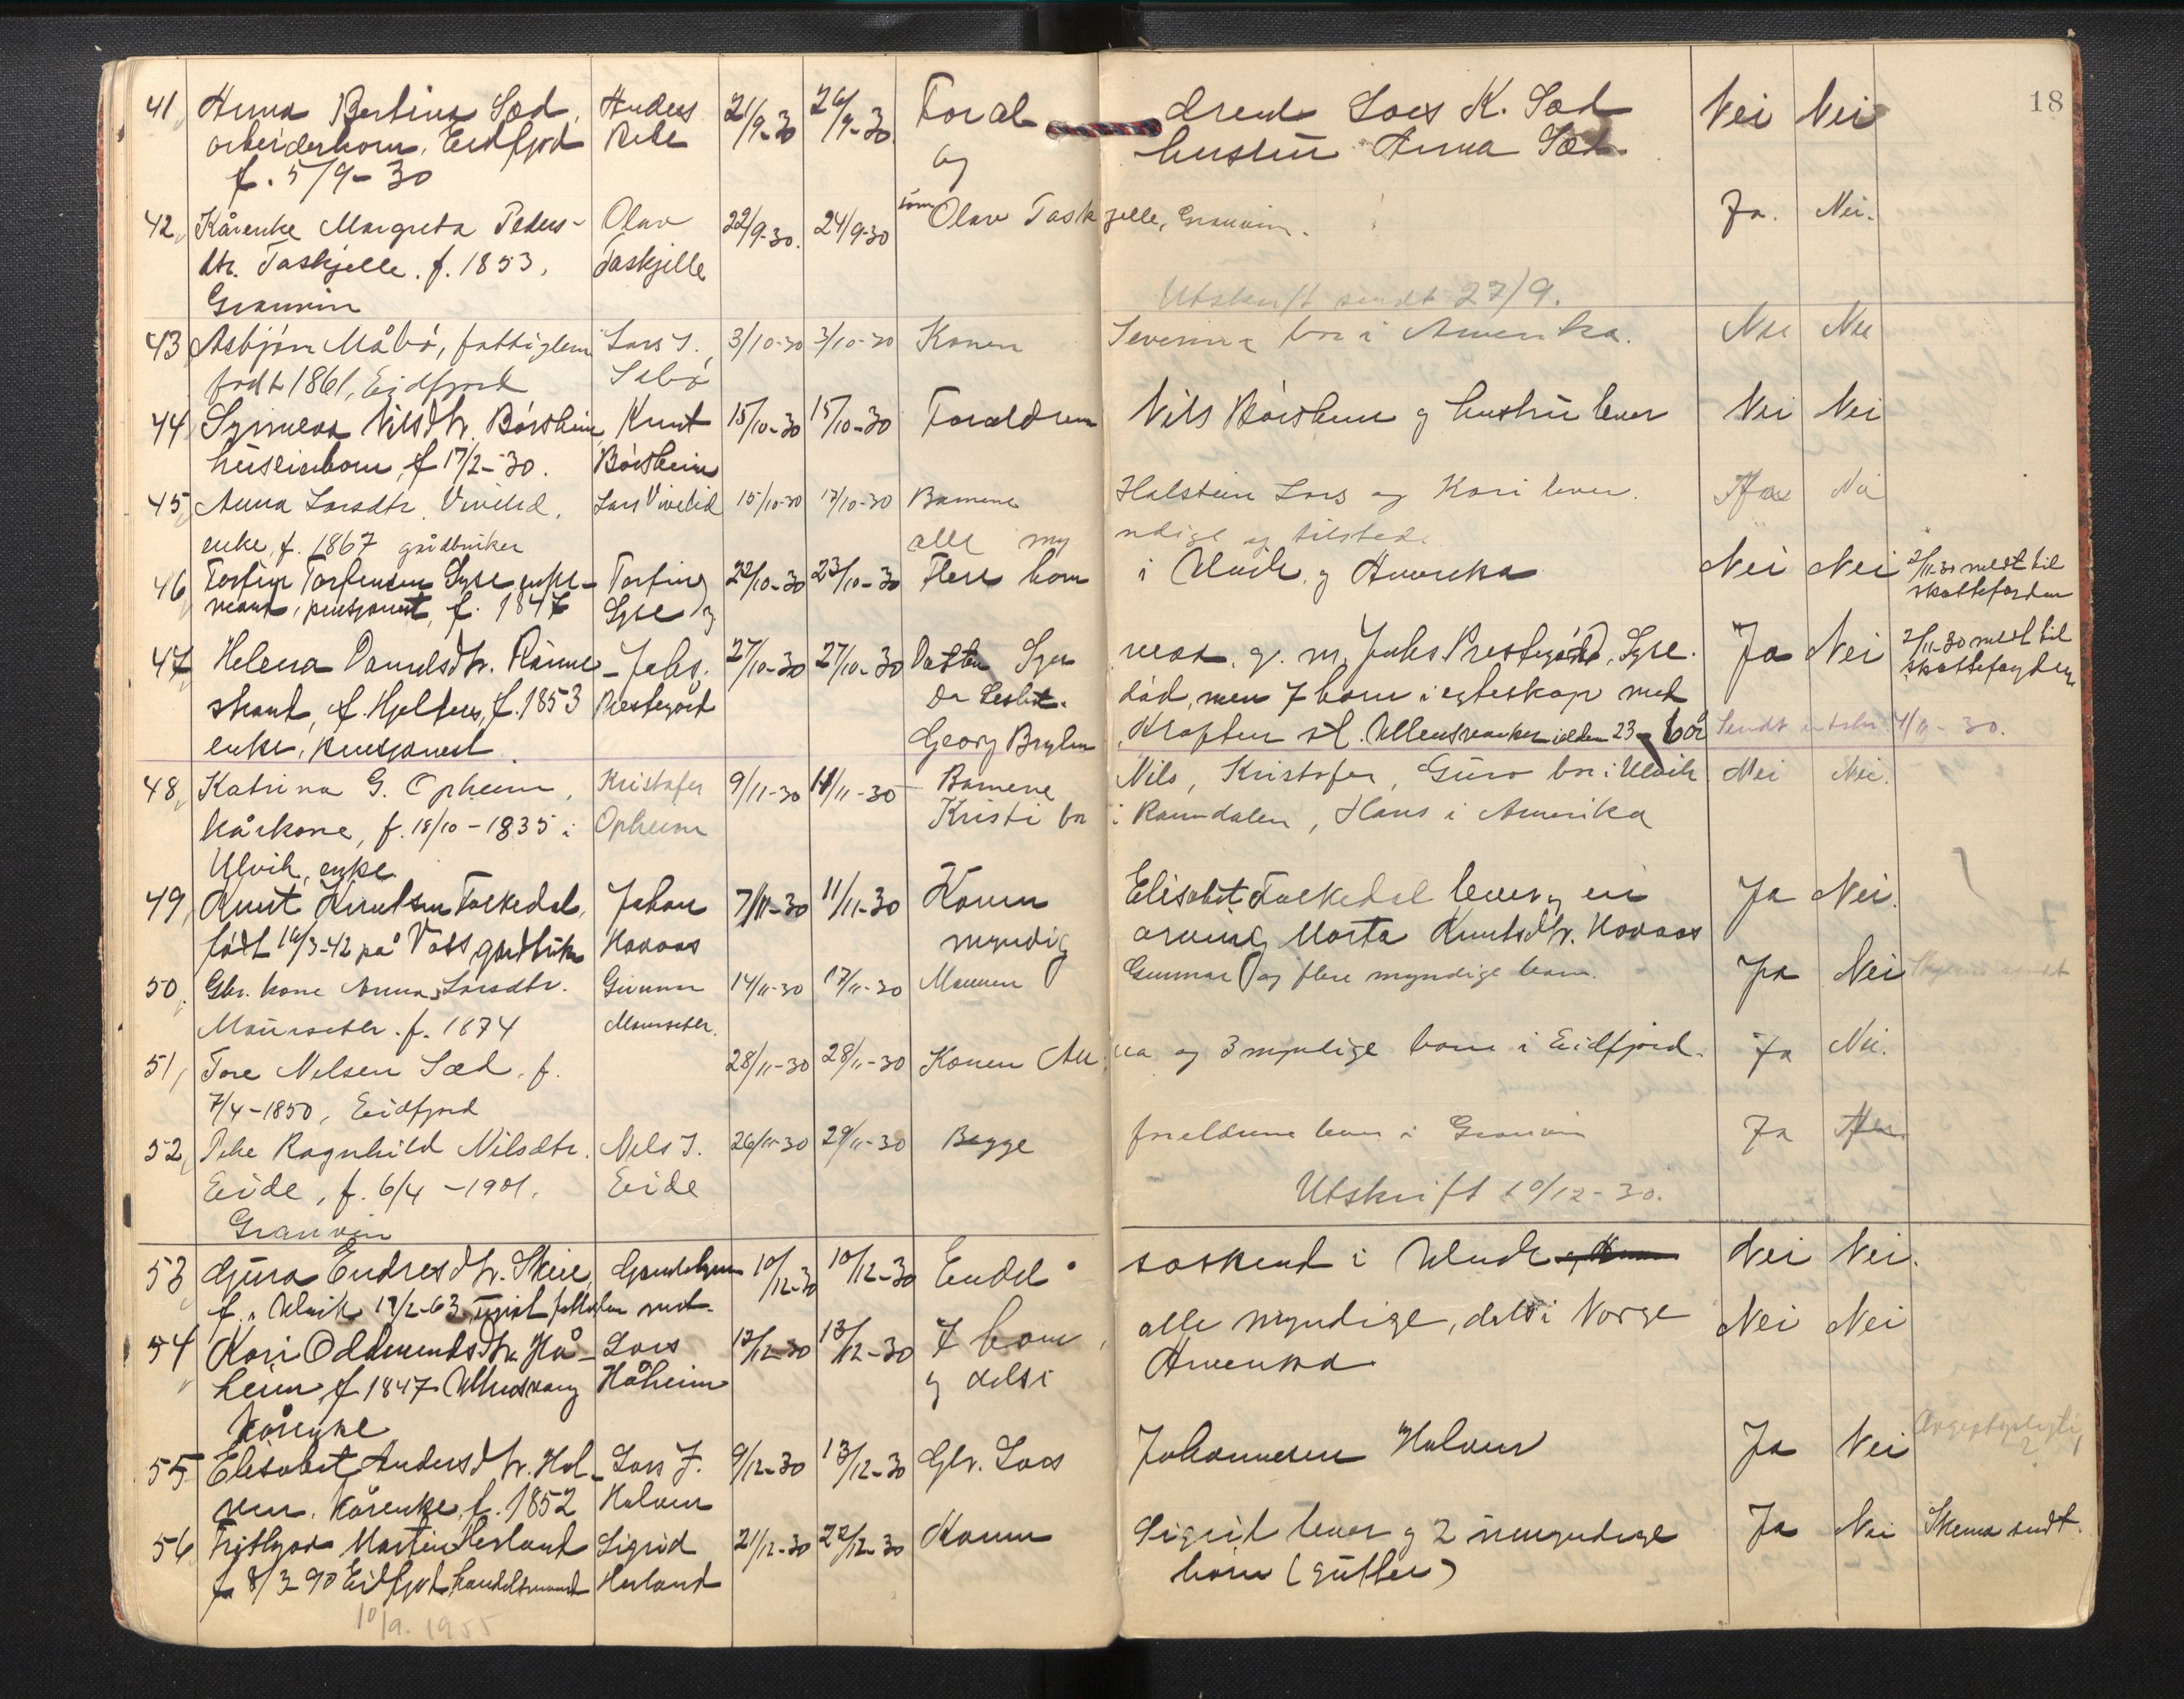 18
41 Anna Bertina Sæd, Anders 21/9-30 26/9-30 Foræl drene Lars K. Sæd Nei Nei
arbeiderbarn, Eidfjord og hustru Anna Sæd.
f. 5/9-30
42 Kårenke Margreta Peders- Olav 22/9-30. 24/9-30 som Olav Taskjelle, Granvin. Ja. Nei.
dtr. Taskjelle. f. 1853, Taskjelle
Granvin Utskrift sendt 27/9.
43 Asbjörn Måbö, fattiglem Lars I. 3/10-30 3/10-30 Konen Severina bor i Amerika. Nei Nei
född 1861, Eidfjord Sebö
44 Synneva Nilsdtr. Börsheim Knut 15/10-30 15/10-30 Forældrene Nils Börsheim og hustru lever Nei Nei
f 17/2-30. Börsheim
45 Anna Larsdtr. Vivelid, Lars Vivelid 15/10-30 17/10-30 Barnene Halstein Lars og Kari lever. Ja Nei
enke, f. 1867 gårdbruker alle myndige og tilstede
46 Torfinn Torfinnsen Lyse, enke- Torfinn 22/10-30 23/10-30 Flere barn i Ulvik og Amerika Nei Nei 2/11-30 meldt til
mand, pensjonist, f. 1847 Lyse skattefogden
47 Helena Danielsdtr. - Johs. 27/10-30 27/10-30 Datter Syn neva g. m. Johs Prestegård, Lyse. Ja Nei 2/11-30 meldt til
strand, f. Hjeltnes, f. 1853 Prestegård död, men 7 barn i egteskap med skattefogden
enke, pensjonist. Georg 23 Sendt 4/11-30.
48 Katrina G. Opheim, Kristofer 9/11-30 11/11-30 Barnene Nils, Kristofer, Guro bor i Ulvik Nei Nei.
kårkone, f. 18/10-1835 i Opheim Kristi bor i Raundalen, Hans i Amerika
Ulvik, enke
49 Knut Knutsen Folkedal, Johan 7/11-30 11/11-30 Konen Elisabet Folkedal lever og en Ja Nei.
född 16/3-42 på Voss, gårdbruker Havaas myndig arving Marta Knutsdtr. Havaas
50 Gbr. kone Anna Larsdtr. Gunnar 14/11-30 17/11-30 Mannen Gunnar og flere myndige barn. Ja Nei
Maurseter. f. 1874 Maurseter.
51 Tore Nilsen Sæd, f. 28/11-30 28/11-30 Konen Anna og 3 myndige barn i Eidfjord. Ja Nei.
7/4-1850, Eidfjord
52 Pike Ragnhild Nilsdtr. Nils I. 26/11-30 29/11-30 Begge foreldrene lever i Granvin Ja
Eide, f. 6/4-1901. Eide Utskrift 10/12-30.
Granvin
53 Gjura Endresdtr. Skeie, 10/12-30 10/12-30 Endel söskend i Ulvik Nei Nei.
f. i Ulvik 19/2-63, ugift
54 Kari Oddmundsdtr. Hå- Lars 12/12-30 13/12-30 7 barn alle myndige, dels i Norge Nei Nei
heim f 1847 Ullensvang Håheim og dels i Amerika
kårenke
55 Elisabet Andersdtr. Hal- Lars J. 9/12-30 13/12-30 Gbr. Lars Johannesen Halven Ja Nei
ven. Kårenke, f. 1852 Halven
56 Fritjov Martin Herland Sigrid 21/12-30 22/12-30 Konen Sigrid lever og 2 umyndige Ja Nei Skema sendt.
f 8/3 90 Eidfjord, handelsmand Herland barn (gutter)
10/9. 1955